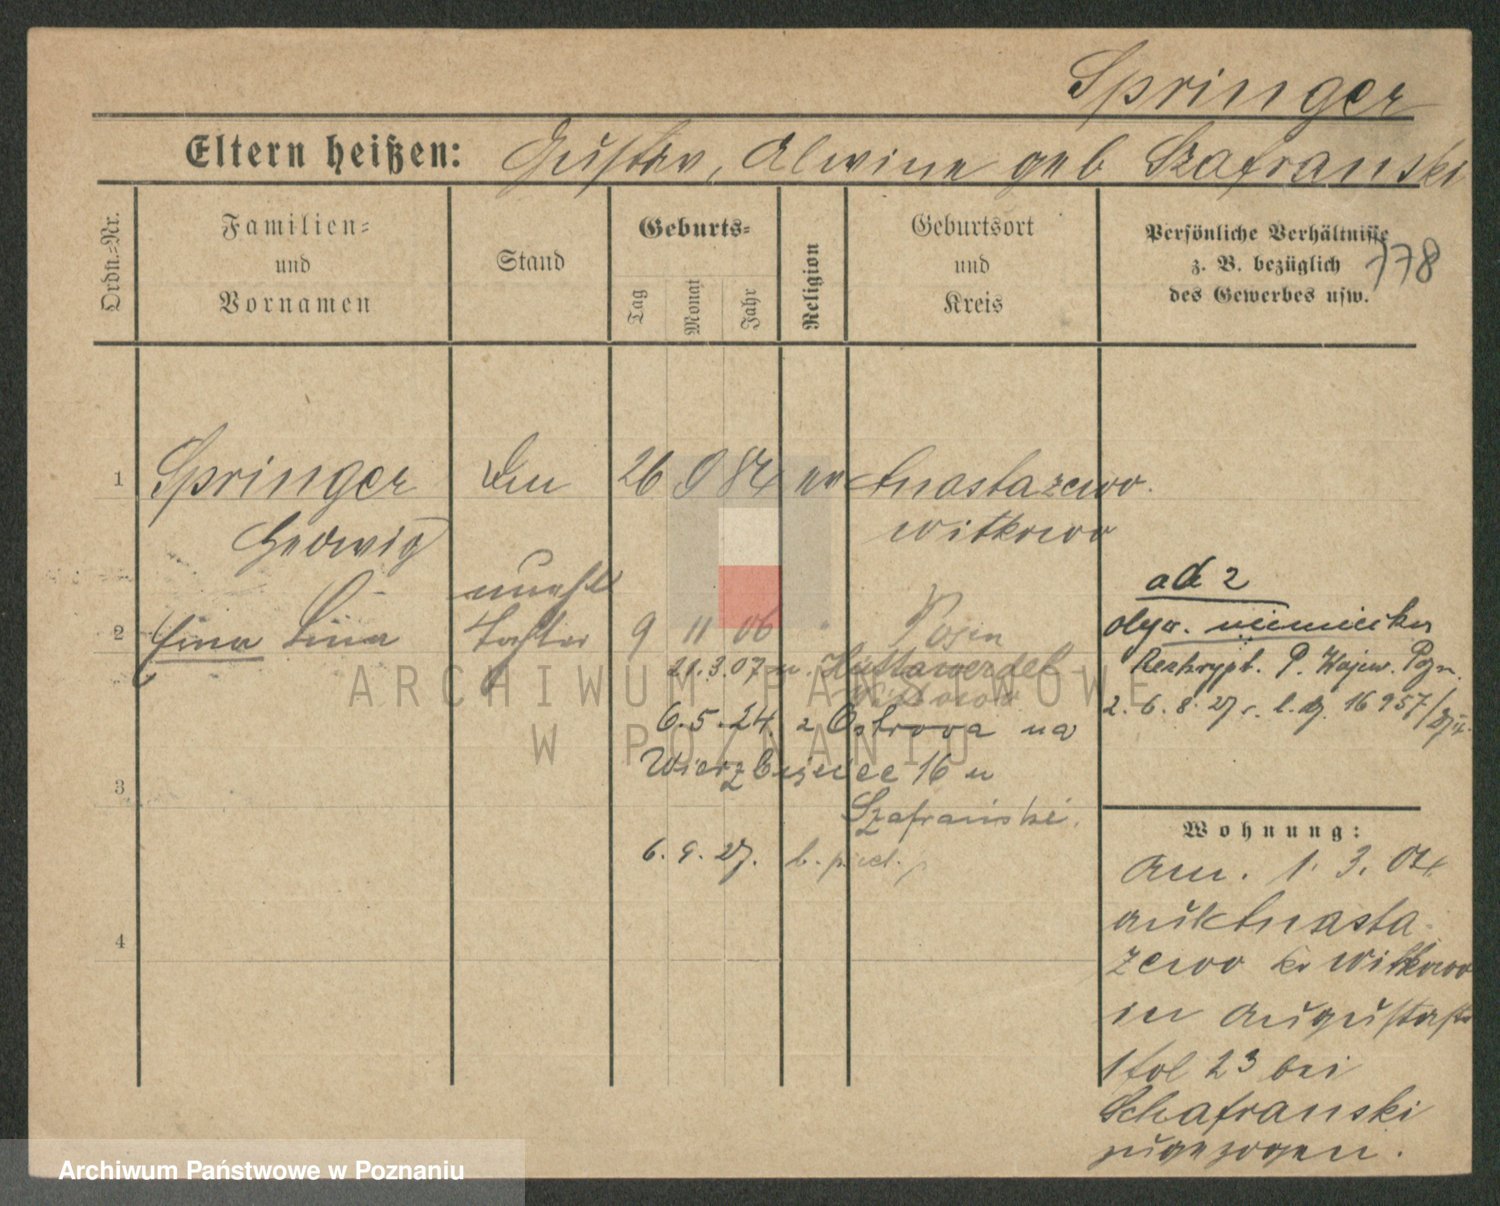 Springer
Eltern heißen: Gustav, Alwine geb Szafranski
Ordn.=Nr.
Familien=
und
Vornamen
Stand
Geburts=
Tag
Monat
Jahr
Religion
Geburtsort
und
Kreis
Persönliche Verhältnisse
z. B. bezüglich
des Gewerbes usw.
178
1 Springer 26 9 84 ev Anastazewo.
Hedwig Witkowo
unehl
2 Erna Lina Tochter 9 11 06 " Posen
21.3.07 n. Huttawerdel
Witkowo
6.5.24. z Ostrowa na
Wierzbięcice 16 u
Szafrański.
6.9.27.
3
4
ad 2
obyw. niemiecka
Reskrypt. P. Wojew. Pozn.
2. 6. 8. 27 r. l. dz. 16957/27 II.
Wohnung:
Am. 1. 3. 04
aus Anasta-
zewo Kr Witkowo
in Augustastr
23 bei
Schafranski
zugezogen.
ARCHIWUM PAŃSTWOWE
W POZNANIU
Archiwum Państwowe w Poznaniu